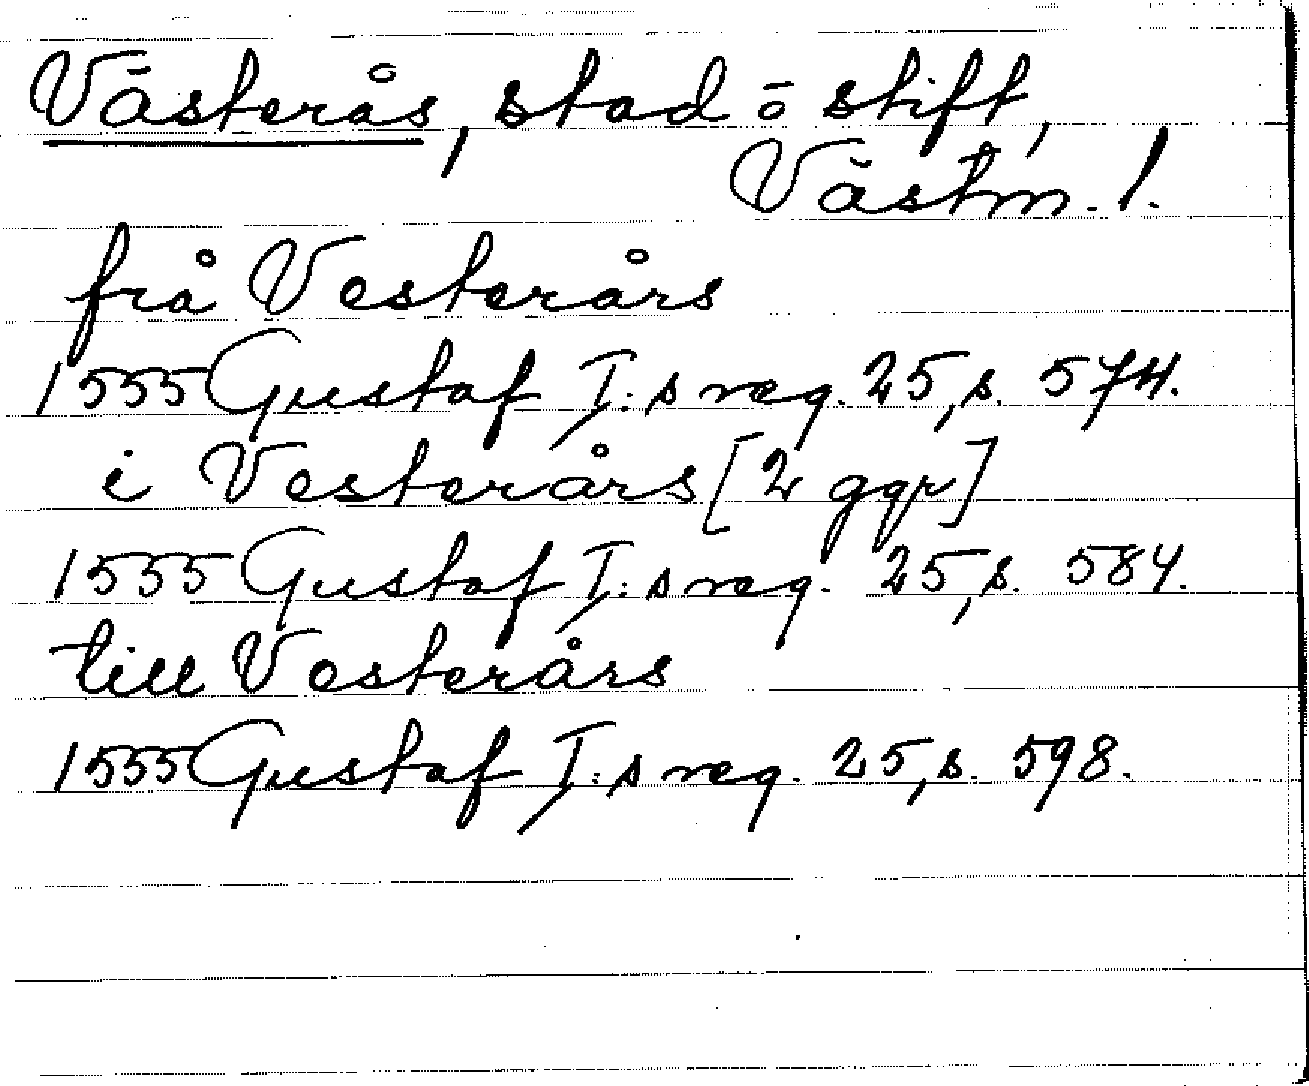 Västerås, stad o stift,
Västm. l.
frå Vesterårs
1555 Gustaf I:s reg. 25, s. 574.
i Vesterårs [2 ggr]
1555 Gustaf I:s reg. 25, s. 584.
till Vesterårs
1555 Gustaf I:s reg. 25, s. 598.